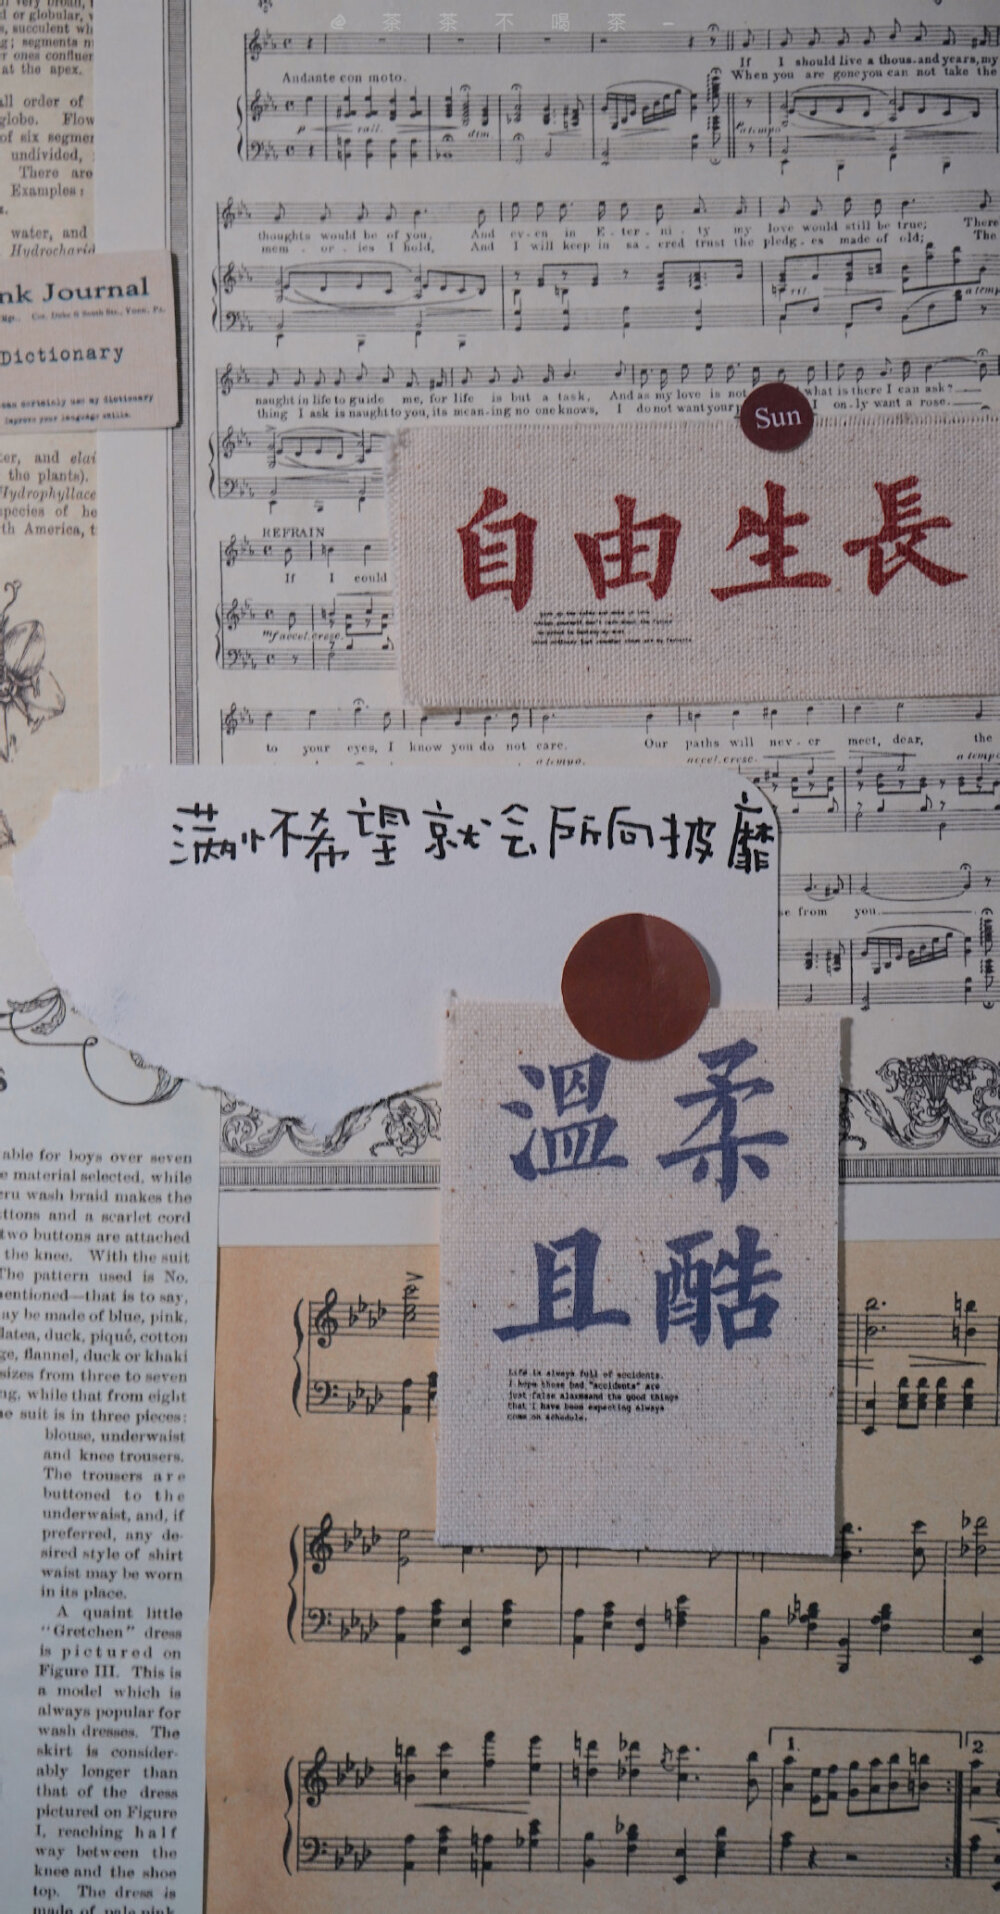 @茶茶不喝茶-
Andante con moto.
If I should live a thous-and years, my
When you are gone you can not take the
thoughts would be of you, And ev-en in E-ter-ni-ty my love would still be true; There
mem-or-ies I hold, And I will keep in sa-cred trust the pledg-es made of old; The
naught in life to guide me, for life is but a task, And as my love is not what is there I can ask?
thing I ask is naught to you, its mean-ing no one knows, I do not want your I on-ly want a rose.
REFRAIN
If I could
to your eyes, I know you do not care. Our paths will nev-er meet, dear, the
from you.
all order of
globe. Flow
of six segmen
undivided,
There are
Examples:
water, and
Hydrocharid
nk Journal
Dictionary
can certainly use my dictionary
improve your language skills.
ter, and elai
the plants).
Hydrophyllace
species of he
th America, t
Sun
自由生長
满怀希望就会所向披靡
温柔
且酷
Life is always full of accidents.
I hope those bad "accidents" are
just false alarmsand the good things
that I have been expecting always
come on schedule.
able for boys over seven
e material selected, while
eru wash braid makes the
ttons and a scarlet cord
two buttons are attached
the knee. With the suit
The pattern used is No.
mentioned—that is to say,
ay be made of blue, pink,
latea, duck, piqué, cotton
ge, flannel, duck or khaki
sizes from three to seven
ng, while that from eight
he suit is in three pieces:
blouse, underwaist
and knee trousers.
The trousers are
buttoned to the
underwaist, and, if
preferred, any de-
sired style of shirt
waist may be worn
in its place.
A quaint little
"Gretchen" dress
is pictured on
Figure III. This is
a model which is
always popular for
wash dresses. The
skirt is consider-
ably longer than
that of the dress
pictured on Figure
I, reaching half
way between the
knee and the shoe
top. The dress is
made of pale pink
1.
2